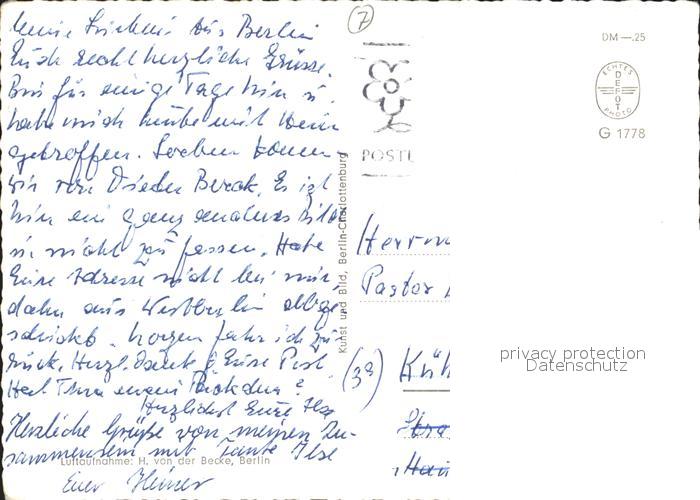 Meine Lieben! Aus Berlin
Euch recht herzliche Grüsse.
Bin für einige Tage hier u.
habe mich heute mit Heiner
getroffen. Soeben kommen
wir von Dieder Borak. Es ist
hier ein ganz anderes Bild
u. nicht zu fassen. Habe
Eure Adresse nicht bei mir,
daher aus Westberlin abge-
schickt. Morgen fahr ich zu-
rück. Herzl. Dank f. Eure Post.
Hat Thea einen
Herzlichst Eure Ilse
Herzliche Grüße von meinem Zu-
sammensein mit Tante Ilse
Euer Heiner
Luftaufnahme: H. von der Becke, Berlin
Kunst und Bild, Berlin-Charlottenburg
7
POSTL
Herrn
Pastor
DM —.25
ECHTES
DEFOT
PHOTO
G 1778
privacy protection
Datenschutz